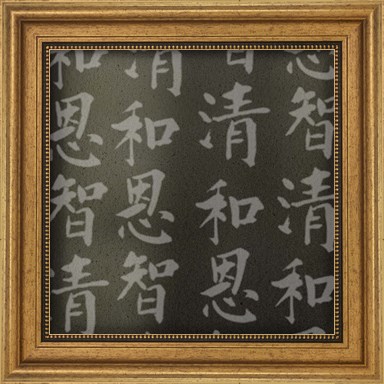 恩智清和
智清和恩
清和恩智
和恩智清